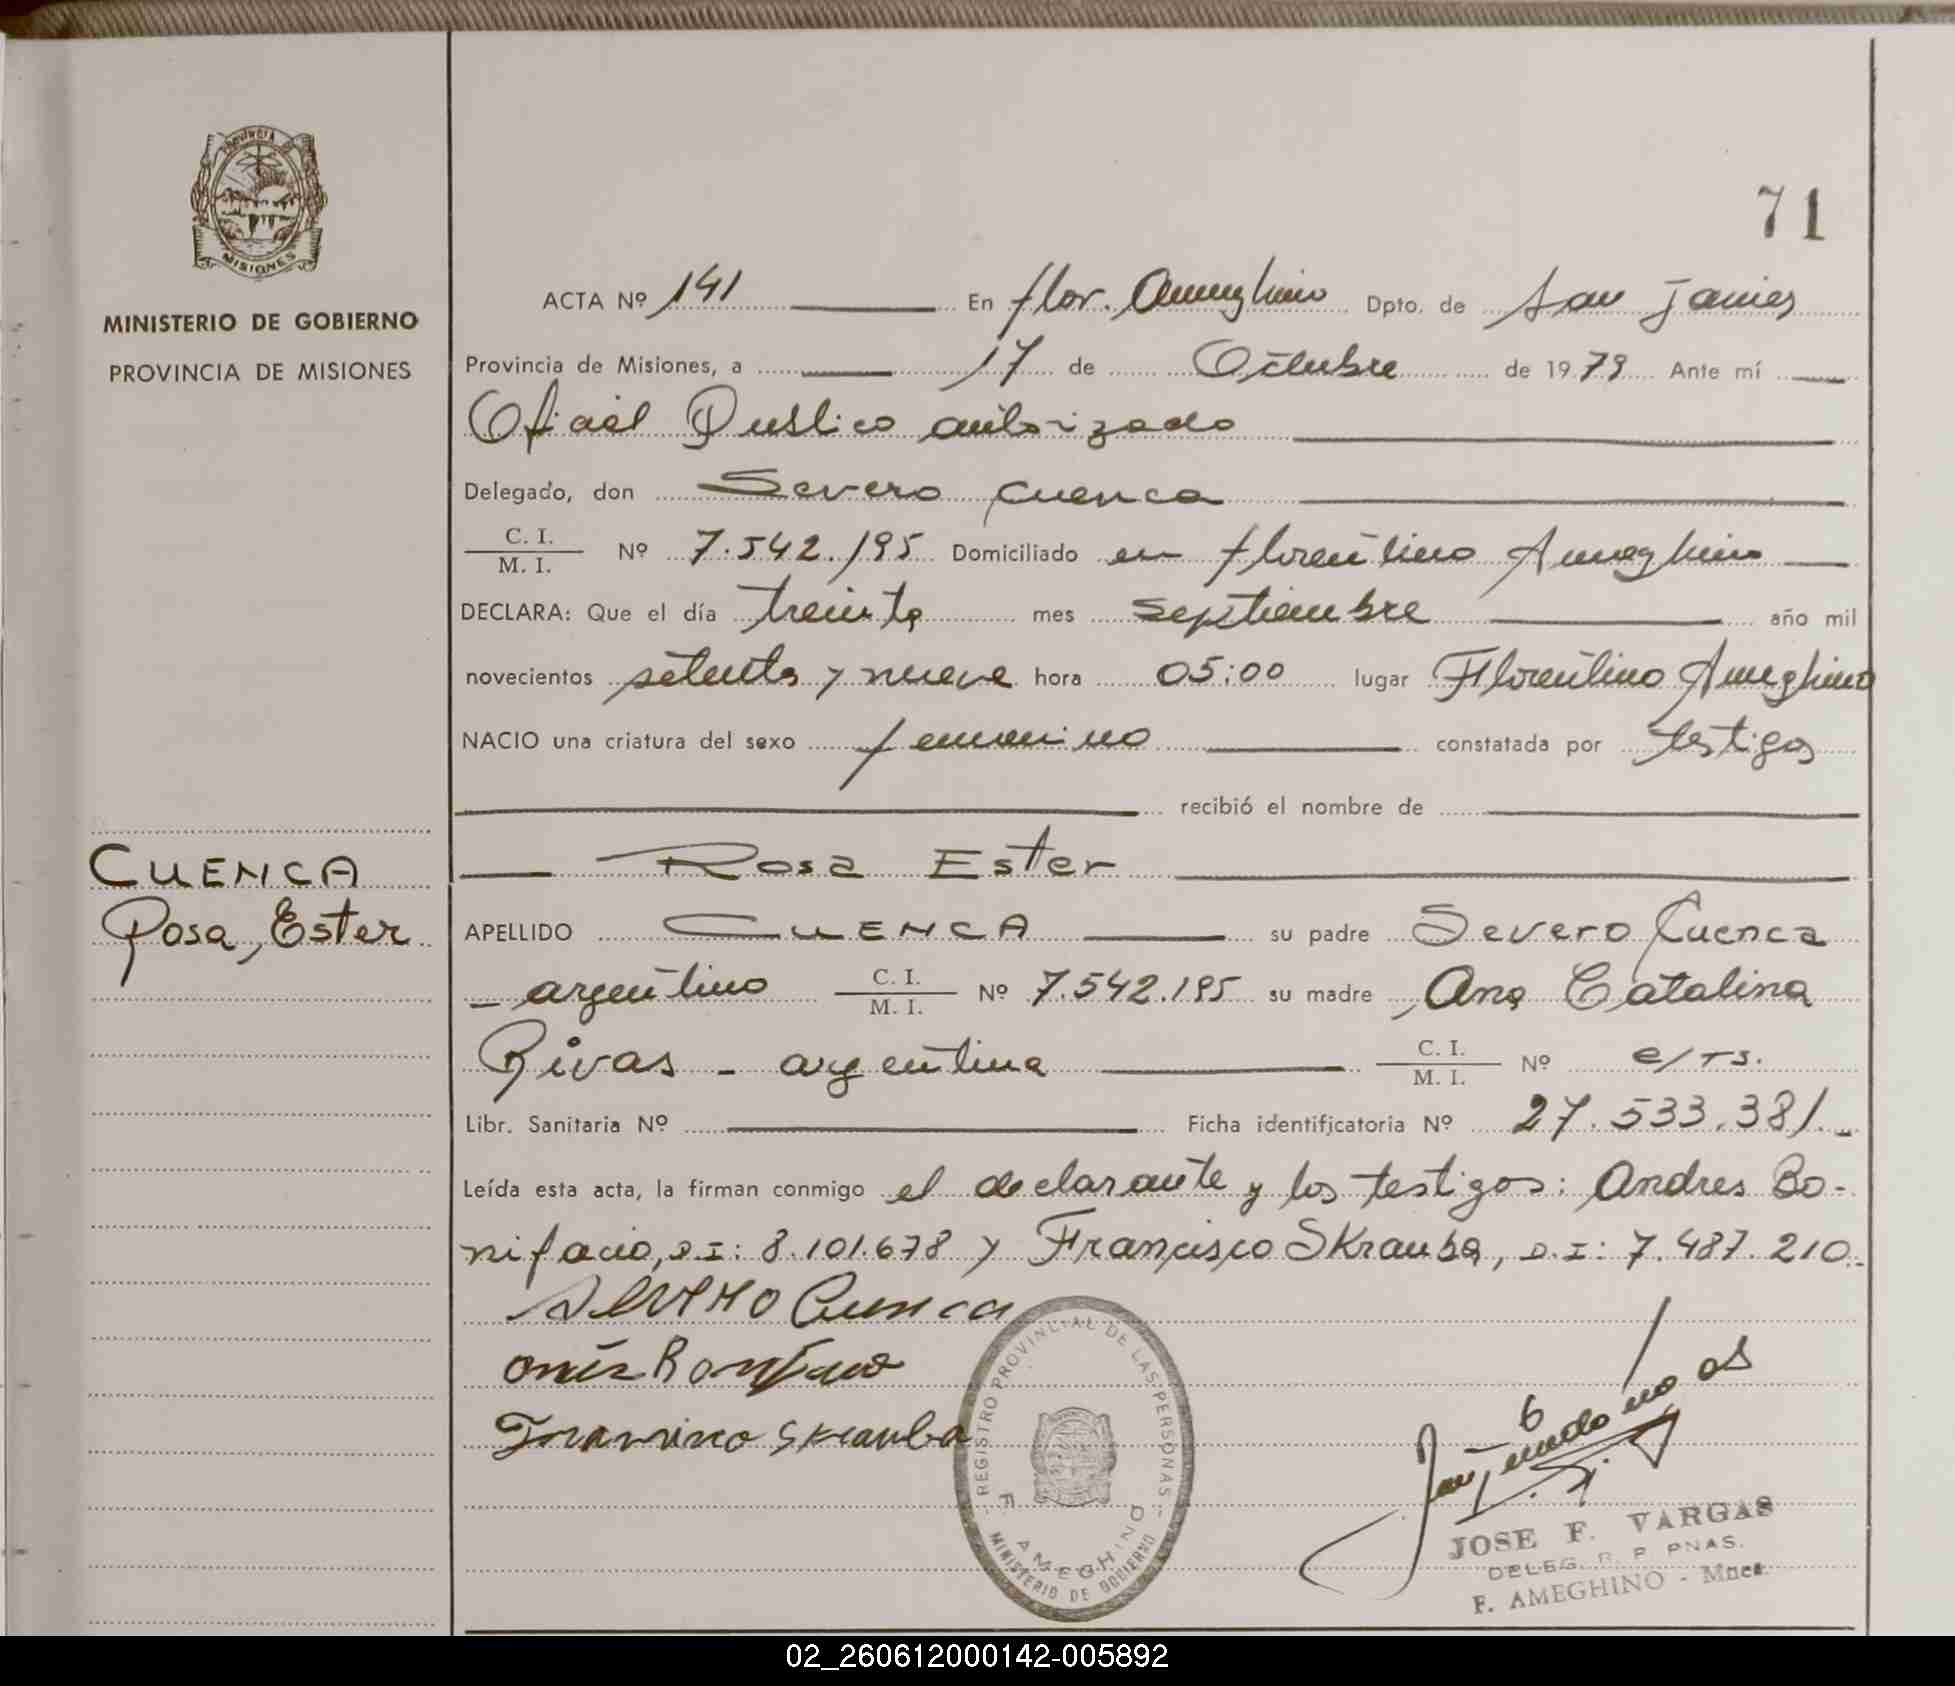 71
PROVINCIA DE
MISIONES
MINISTERIO DE GOBIERNO
PROVINCIA DE MISIONES
CUENCA
Rosa, Ester
ACTA Nº 141 En flor. Ameghino Dpto. de San Javier
Provincia de Misiones, a 17 de Octubre de 1979 Ante mí
Oficial Publico autorizado
Delegado, don Severo Cuenca
C. I. / M. I. Nº 7.542.195 Domiciliado en florentino Ameghino
DECLARA: Que el día treinta mes septiembre año mil
novecientos setenta y nueve hora 05:00 lugar Florentino Ameghino
NACIO una criatura del sexo femenino constatada por testigos
recibió el nombre de
Rosa Ester
APELLIDO CUENCA su padre Severo Cuenca
- argentino C. I. / M. I. Nº 7.542.195 su madre Ana Catalina
Rivas - argentina C. I. / M. I. Nº e/TS.
Libr. Sanitaria Nº Ficha identificatoria Nº 27.533.381.-
Leída esta acta, la firman conmigo el declarante y los testigos: Andres Bo-
nifacio, D.I: 8.101.678 y Francisco SKrauba, D.I: 7.487.210.-
Severo Cuenca
Francisco Skrauba
REGISTRO PROVINCIAL DE LAS PERSONAS
F. AMEGHINO
MINISTERIO DE GOBIERNO
JOSE F. VARGAS
DELEG. R. P. PNAS.
F. AMEGHINO - Mnes.
02_260612000142-005892